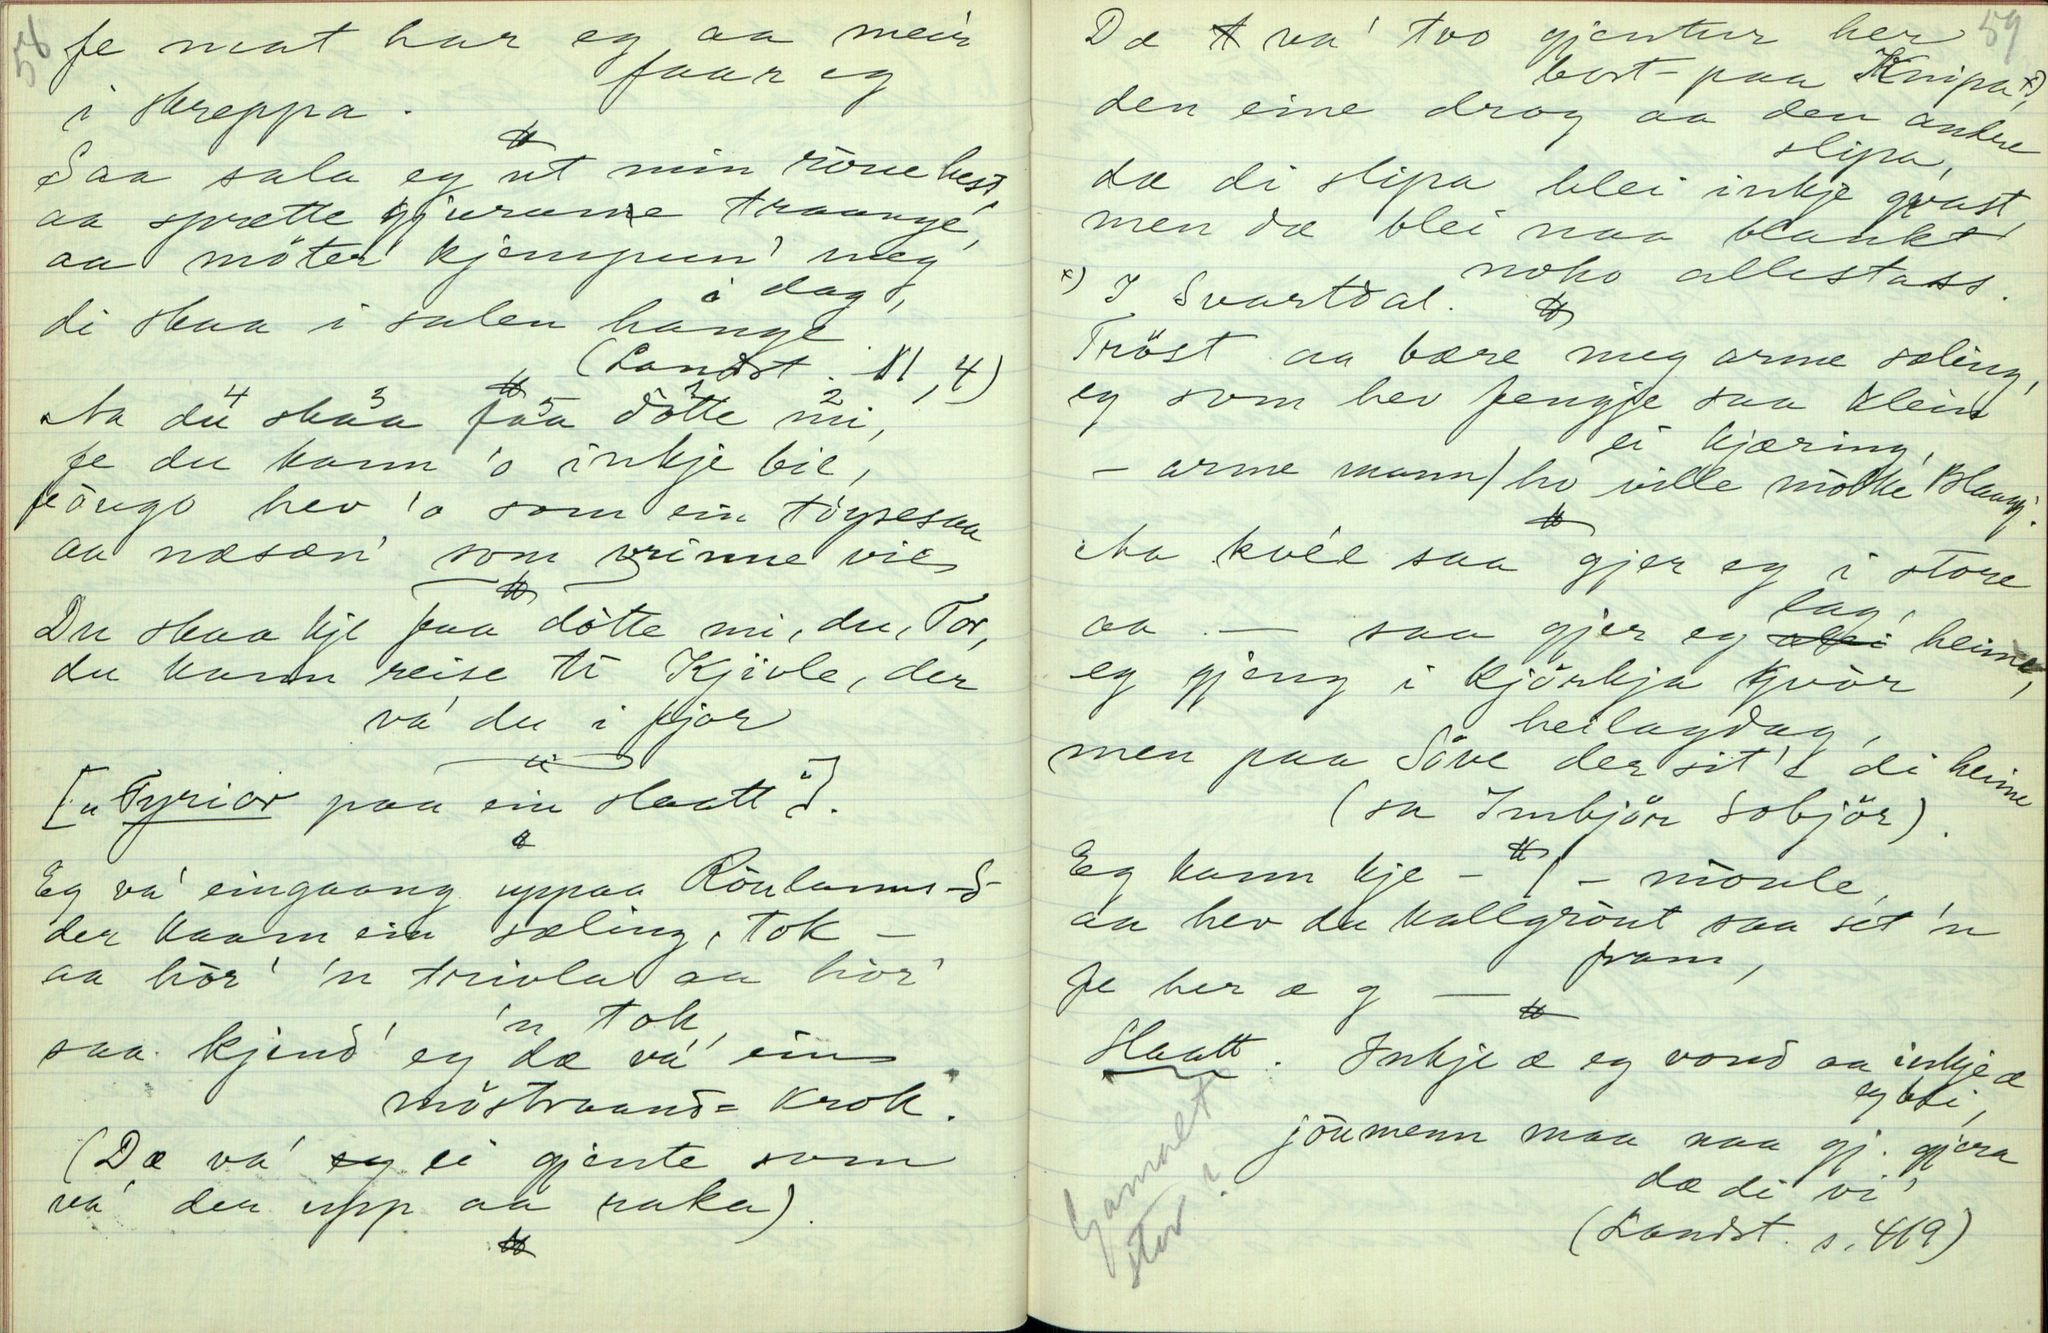 58
fe mat har eg aa meir
faar eg
i skreppa.
Saa sala eg ut min röue hest,
aa sprette gjurune traange,
aa möter kjempun' meg
i dag,
di skaa i salen hange
(Landst. XI, 4)
Aa du skaa faa dötte mi,
4 3 5 1 2
fe du kann 'o inkje bie,
jöugo hev 'o som ein töysesaa
aa næsæn' som vrinne vie
Du skaa kje faa dötte mi, du, Tor,
du kann reise ti Kjivle, der
va' du i fjor
[„Fyriar paa ein slaatt"].
Eg va' eingaang uppaa Röulanns-S-
der kaam ein sæling, tok -
aa hör' 'n trivla aa hör'
'n tok,
saa kjend' eg dæ va' ein
möstraand- krok.
(Dæ va' ei gjente som
va' der upp aa raka).
59
Dæ va' tvo gjentur her
bort paa Knipa x),
den eine drog aa den andre
slipa,
dæ di slipa blei inkje qvast,
men dæ blei naa blankt
noko allestass.
x) I Svartdal.
Tröst aa bære meg arme sæling,
eg som hev fengje saa klein
ei kjæring,
- arme mann / ho ville mölke Blaagj.
Aa kvél saa gjer eg i store
lag,
aa - saa gjer eg heime,
eg gjeng i kjörkja kvör
heilagdag,
men paa Söve der sit di heime
(sa Imbjör Sobjör).
Eg kann kje - / - möule,
aa hev du kallgröut saa set 'n
fram,
fe her æ g -
Slaatt. Inkje æ eg vond aa inkje æ
eg bli,
jöumenn maa naa gj. gjera
dæ di vi'
(Landst. s. 469)
Gamalt
stev?